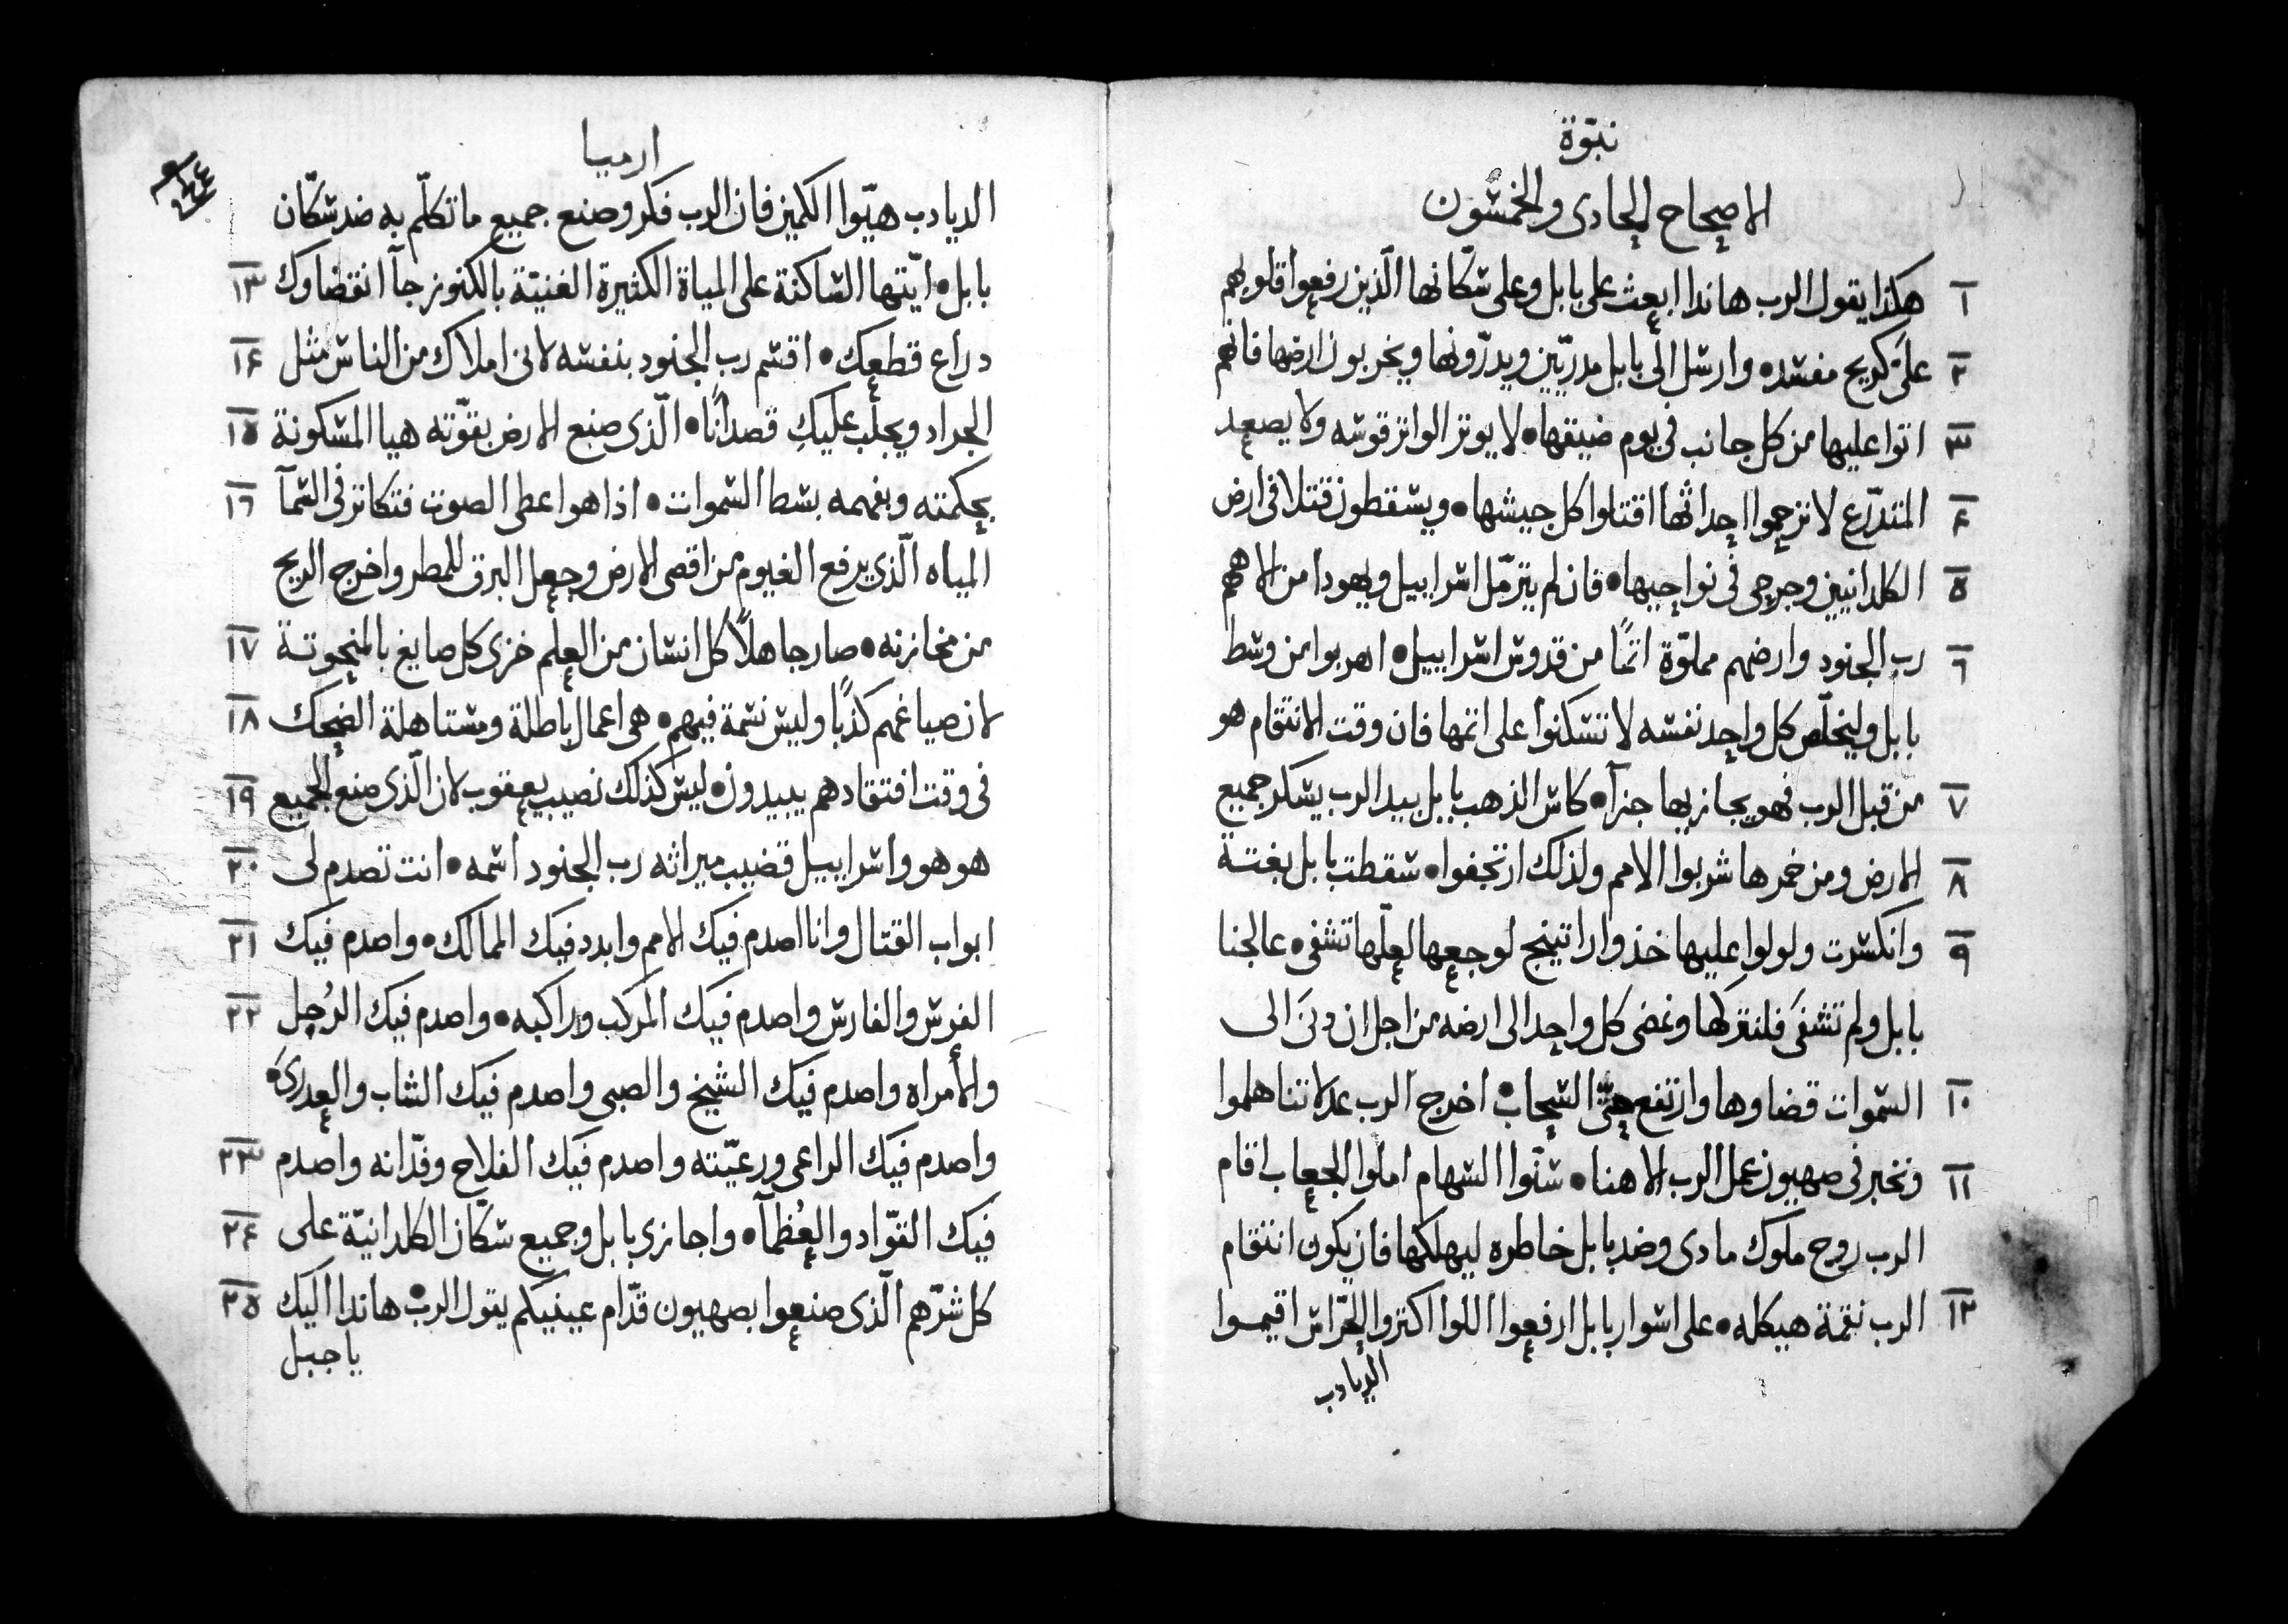 نبوّة
الاصحاح الحادى والخمسون
١ هكذا يقول الرب هاندا ابعث على بابل وعلى سكّانها الّذين رفعوا قلوبهم
٢ علىّ كريح مفسد• وارسل الى بابل مدريّين ويدرّونها ويخربون ارضها فانهم
٣ اتوا عليها من كل جانب فى يوم ضيقها• لا يوتر الواتر قوسه ولا يصعد
٤ المتدرّع لا ترحموا احداثها اقتلوا كل جيشها• ويسقطون قتلا فى ارض
٥ الكلدانيين وجرحى فى نواحيها• فان لم يترمّل اسراييل ويهودا من الاههم
٦ رب الجنود وارضهم مملوّة اثمًا من قدوس اسراييل• اهربوا من وسط
بابل وليخلّص كل واحد نفسه لا تسكنوا على اثمها فان وقت الانتقام هو
٧ من قبل الرب فهو يجازيها جزآ• كاس الذهب بابل بيد الرب يسكر جميع
٨ الارض ومن خمرها شربوا الامم ولذلك ارتجفوا• سقطت بابل بغتة
٩ وانكسرت ولولوا عليها خذوا راتينج لوجعها لعلّها تشفى• عالجنا
بابل ولم تشفَى فلنتركها ونمضى كل واحد الى ارضه من اجل ان دنى الى
١٠ السموات قضاوها وارتفع حتّى السحاب• اخرج الرب عدلاتنا هلموا
١١ ونخبر فى صهيون عمل الرب الاهنا• سنّوا السهام املوا الجعاب اقام
الرب روح ملوك مادى وضد بابل خاطره ليهلكها فان يكون انتقام
١٢ الرب نقمة هيكله• على اسوار بابل ارفعوا اللوا اكثروا الحرّاس اقيموا
الديادب
ارميا
الديادب هيّوا الكمين فان الرب فكر وصنع جميع ما تكلّم به ضد سكّان
١٣ بابل• ايّتها الساكنة على المياة الكثيرة الغنيّة بالكنوز جآ انقضاوك
١٤ دراع قطعك• اقسم رب الجنود بنفسه لانى املاك من الناس مثل
١٥ الجراد ويجلب عليكِ قصدانًا• الّذى صنع الارض بقوّته هيا المسكونة
١٦ بحكمته وبفهمه بسط السموات• اذا هوا عطى الصوت فتكاثر فى السمآ
المياه الّذى يرفع الغيوم من اقصى الارض وجعل البرق للمطر واخرج الريح
١٧ من مخازنه• صار جاهلاً كل انسان من العلم خزى كل صايغ بالمنحوتة
١٨ لان صياغهم كذبًا وليس نسمة فيهم• هى اعمال باطلة ومستاهلة الضحك
١٩ فى وقت افتقادهم يبيدون• ليس كذلك نصيب يعقوب لان الّذى صنع الجميع
٢٠ هو هو واسراييل قضيب ميراثه رب الجنود اسمه• انت تصدم لى
٢١ ابواب القتال وانا اصدم فيك الامم وابدد فيك الممالك• واصدم فيك
٢٢ الفرس والفارس واصدم فيك المركب وراكبه• واصدم فيك الرُجل
والأمراه واصدم فيك الشيخ والصبى واصدم فيك الشاب والعدرىَ•
٢٣ واصدم فيك الراعى ورعيّته واصدم فيك الفلاح وفدّانه واصدم
٢٤ فيك القوّاد والعُظمآ• واجازى بابل وجميع سكّان الكلدانيّة على
٢٥ كل شرّهم الّذى صنعوا بصهيون قدّام عينيكم يقول الرب• هاندا اليك
يا جبل